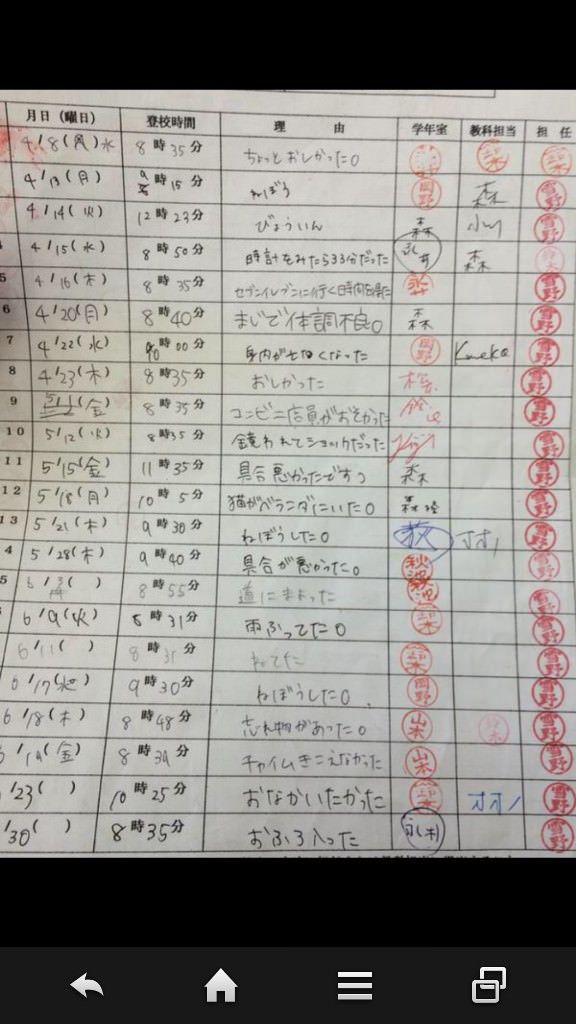 月日（曜日） 登校時間 理由 学年室 教科担当 担任
4/8(水 8時35分 ちょっとおしかった。
4/13(月) 9時15分 ねぼう 岡野 森 雪野
4/14(火) 12時23分 びょういん 森 小川 雪野
4/15(水) 8時50分 時計をみたら33分だった 永井 森
5 4/16(木) 8時35分 セブンイレブンに行く時間 雪野
6 4/20(月) 8時40分 まじで体調不良。 森 雪野
7 4/22(水) 時00分 身内が亡くなった 岡野 雪野
8 4/23(木) 8時35分 おしかった 雪野
9 (金) 8時35分 コンビニ店員がおそかった 雪野
10 5/12(火) 8時35分 鏡われてショックだった 雪野
11 5/15(金) 11時35分 具合悪かったですっ 森 雪野
12 5/18(月) 10時5分 猫がベランダにいた。 雪野
13 5/21(木) 9時30分 ねぼうした。 荻 オオノ 雪野
4 5/28(木) 9時40分 具合が悪かった。 雪野
5 6/3( ) 8時55分 道にまよった 雪野
6/9(火) 8時31分 雨ふってた。 雪野
6/11( ) 8時31分 ねてた 雪野
6/17(水) 9時30分 ねぼうした。 岡野 雪野
6/18(木) 8時48分 忘れ物があった。 山本 雪野
/19(金) 8時39分 チャイムきこえなかった 山本 雪野
/23( ) 10時25分 おなかいたかった オオノ 雪野
/30( ) 8時35分 おふろ入った 雪野